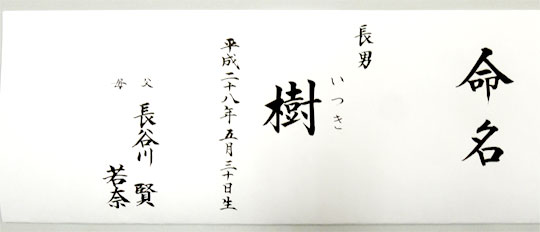 命名
長男
いつき
樹
平成二十八年五月三十日生
父 長谷川 賢
母 若奈